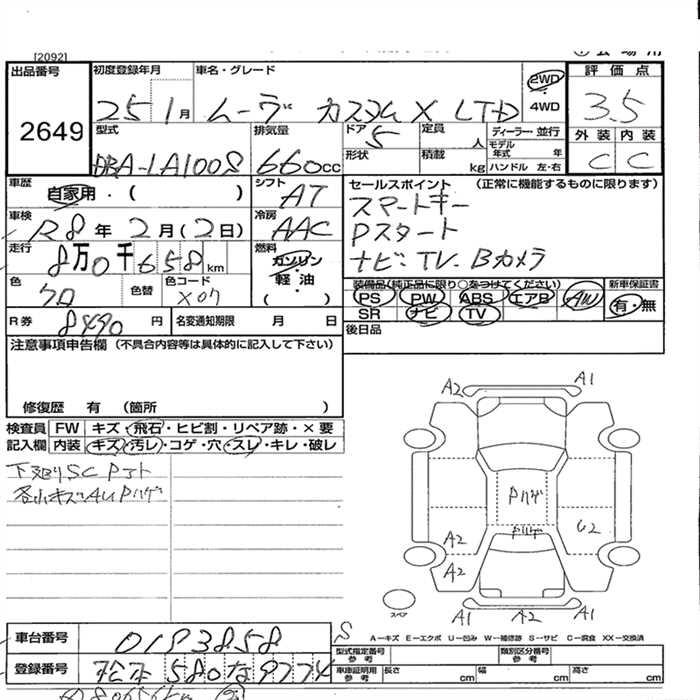 [2092]
出品番号 初度登録年月 車名・グレード 2WD・4WD 評価点
2649
25 1月 ムーヴ カスタム X LTD 3.5
型式 排気量 ドア 定員 ディーラー・並行 外装 内装
DBA-LA100S 660cc 5 人 モデル年式 年 C C
形状 積載 kg ハンドル 左・右
車歴 自家用・( ) シフト AT
セールスポイント (正常に機能するものに限ります)
スマートキー
Pスタート
ナビ・TV・Bカメラ
車検 R8年2月(2日) 冷房 AAC
走行 8万0千658km 燃料 ガソリン・軽油 ( )
色 クロ 色替 色コード X07
装備品(純正品に限り○をつけてください) 新車保証書
PS PW ABS エアB AW 有・無
SR ナビ TV
R券 8490円 名変通知期限 月 日 後日品
注意事項申告欄 (不具合内容等は具体的に記入して下さい)
修復歴 有 (箇所 )
検査員 FW キズ・飛石・ヒビ割・リペア跡・×要
記入欄 内装 キズ・汚レ・コゲ・穴・スレ・キレ・破レ
下廻りSC Pコト
各小キズ AU Pハゲ
A2 A1
Pハゲ
Pハゲ
A2 U2
A2
A1 A2 A1
スペア
S
A-キズ E-エクボ U-凹み W-補修跡 S-サビ C-腐食 XX-交換済
車台番号 0183858
型式指定番号 参考 類別区分番号 参考
登録番号 松本 580 な 9774
車庫証明用 参考 長さ cm 幅 cm 高さ cm